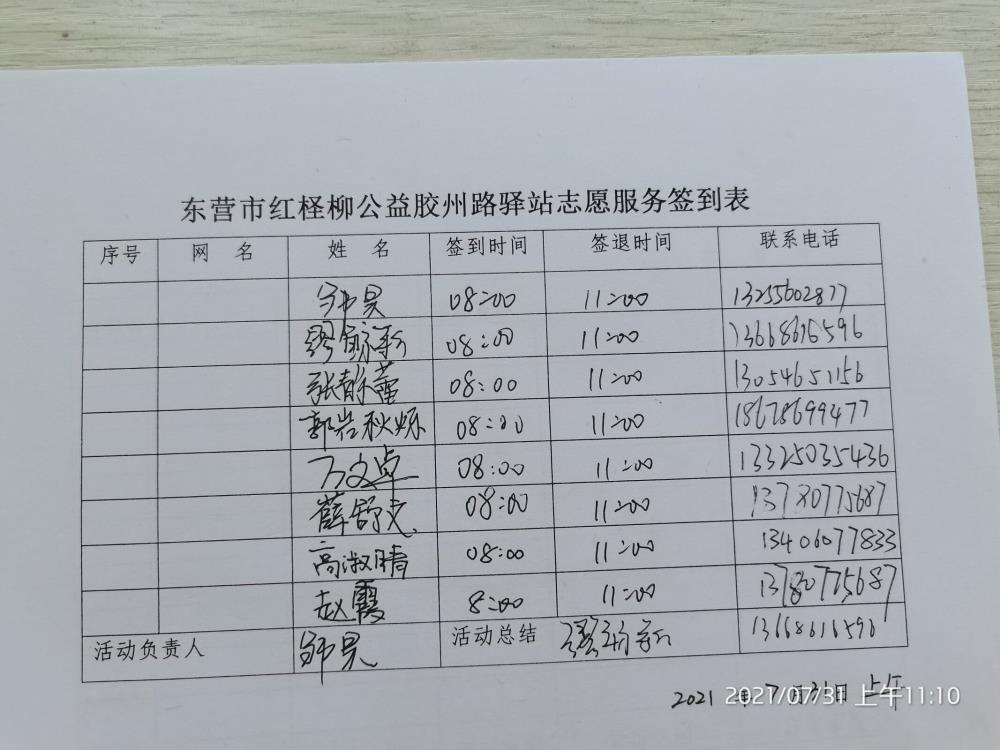 东营市红柽柳公益胶州路驿站志愿服务签到表
序号 网 名 姓 名 签到时间 签退时间 联系电话
08:00 11:00 13255602877
08:00 11:00 13668616596
08:00 11:00 13054651156
郭岩秋烁 08:00 11:00 18678699477
万文卓 08:00 11:00 13325035436
薛舒文 08:00 11:00 13780775687
高淑晴 08:00 11:00 13406077833
赵霞 8:00 11:00 13780775687
活动负责人 活动总结 13668616596
2021 年 7月31日 上午
2021/07/31 上午11:10